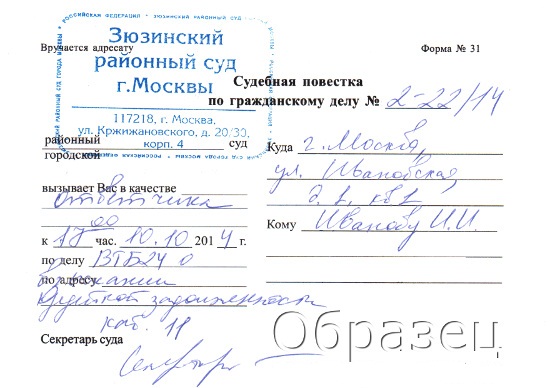 РОССИЙСКАЯ ФЕДЕРАЦИЯ • ЗЮЗИНСКИЙ РАЙОННЫЙ СУД
Вручается адресату
Форма № 31
Зюзинский
районный суд
г.Москвы
117218, г. Москва,
ул. Кржижановского, д. 20/30,
корп. 4
Судебная повестка
по гражданскому делу № 2-22/14
районный
городской суд
Куда г. Москва,
ул. Ивановская,
д. 1, кв 1
Кому Иванову И.И.
вызывает Вас в качестве
ответчика
к 17 00 час. 10.10 2014 г.
по делу ВТБ24 о
по адресу взыскании
кредитной задолженности
каб. 11
Секретарь суда
Образец